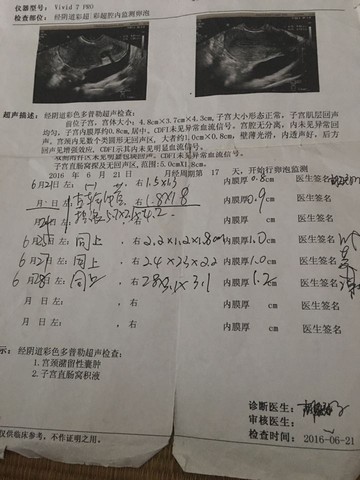 仪器型号: Vivid 7 PRO
检查部位: 经阴道彩超;彩超腔内监测卵泡
超声描述: 经阴道彩色多普勒超声检查:
前位子宫, 宫体大小: 4.8cm×3.7cm×4.3cm,子宫大小形态正常, 子宫肌层回声
均匀, 子宫内膜厚约0.8cm,居中, CDFI未见异常血流信号。宫腔无分离, 内未见异常回
声, 宫颈内见数个类圆形无回声区, 大者约1.0cm×0.8cm, 壁薄光滑, 内透声好, 后方
回声见增强效应, CDFI示其内未见明显血流信号。
双附件区未见明显包块回声, CDFI未见异常血流信号。
子宫直肠窝探及无回声区, 范围:5.0cm×1.8cm。
2016 年 6 月 21 日 月经周期第 17 天, 开始行卵泡监测
6月21日 左: 右 1.5×1.3 内膜厚 0.8 cm 医生签名
月 日 左: 右 1.8×1.8 内膜厚 0.9 cm 医生签名
右 内膜厚 cm 医生签名
6月25日 左: 同上 右 2.2×1.2×1.8cm 内膜厚 1.0 cm 医生签名
6月27日 左: 同上 右 2.4×2.3×2.2 内膜厚 1.0 cm 医生签名
6月28日 左: 同上 右 内膜厚 1.2 cm 医生签名
月 日 左: 右 内膜厚 cm 医生签名
月 日 左: 右 内膜厚 cm 医生签名
示: 经阴道彩色多普勒超声检查:
1.宫颈潴留性囊肿
2.子宫直肠窝积液
诊断医生:
审核医生:
检查时间: 2016-06-21
仅供临床参考, 不作证明之用。